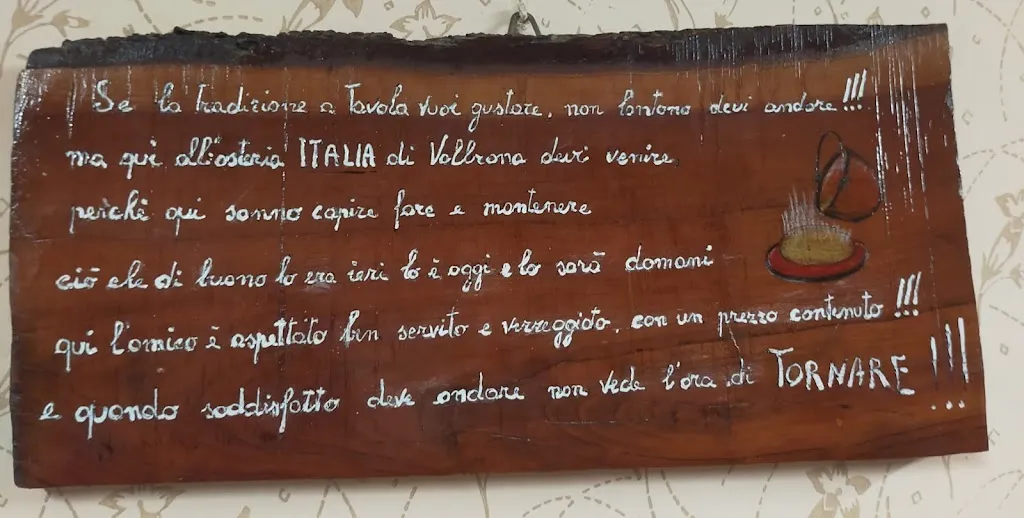 Se la tradizione a Tavola vuoi gustare, non lontano devi andare!!!
ma qui all'osteria ITALIA di Vallrona devi venire
perchè qui sanno capire fare e mantenere
ciò che di buono lo era ieri lo è oggi e lo sarà domani
qui l'amico è aspettato ben servito e vezzeggiato, con un prezzo contenuto!!!
e quando soddisfatto deve andare non vede l'ora di TORNARE!!!